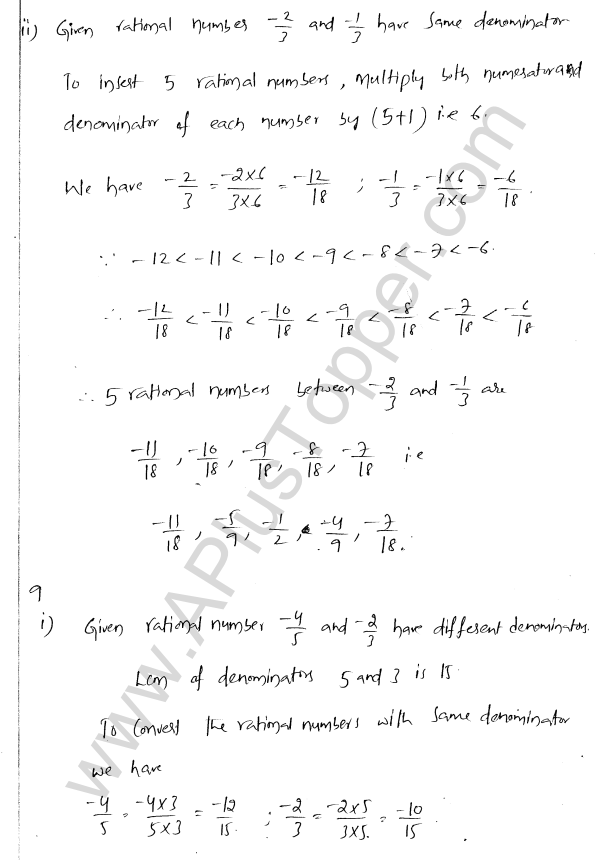 ii) Given rational number -2/3 and -1/3 have same denominator
To insert 5 rational numbers, multiply both numerator and
denominator of each number by (5+1) i.e 6.
We have -2/3 = -2×6/3×6 = -12/18 ; -1/3 = -1×6/3×6 = -6/18.
∵ -12 < -11 < -10 < -9 < -8 < -7 < -6.
∴ -12/18 < -11/18 < -10/18 < -9/18 < -8/18 < -7/18 < -6/18
∴ 5 rational numbers between -2/3 and -1/3 are
-11/18, -10/18, -9/18, -8/18, -7/18 i.e
-11/18, -5/9, -1/2, -4/9, -7/18.
9
i) Given rational number -4/5 and -2/3 have different denominators.
Lcm of denominators 5 and 3 is 15.
To Convert the rational numbers with same denominator
we have
-4/5 = -4×3/5×3 = -12/15 ; -2/3 = -2×5/3×5 = -10/15.
www.APlusTopper.com